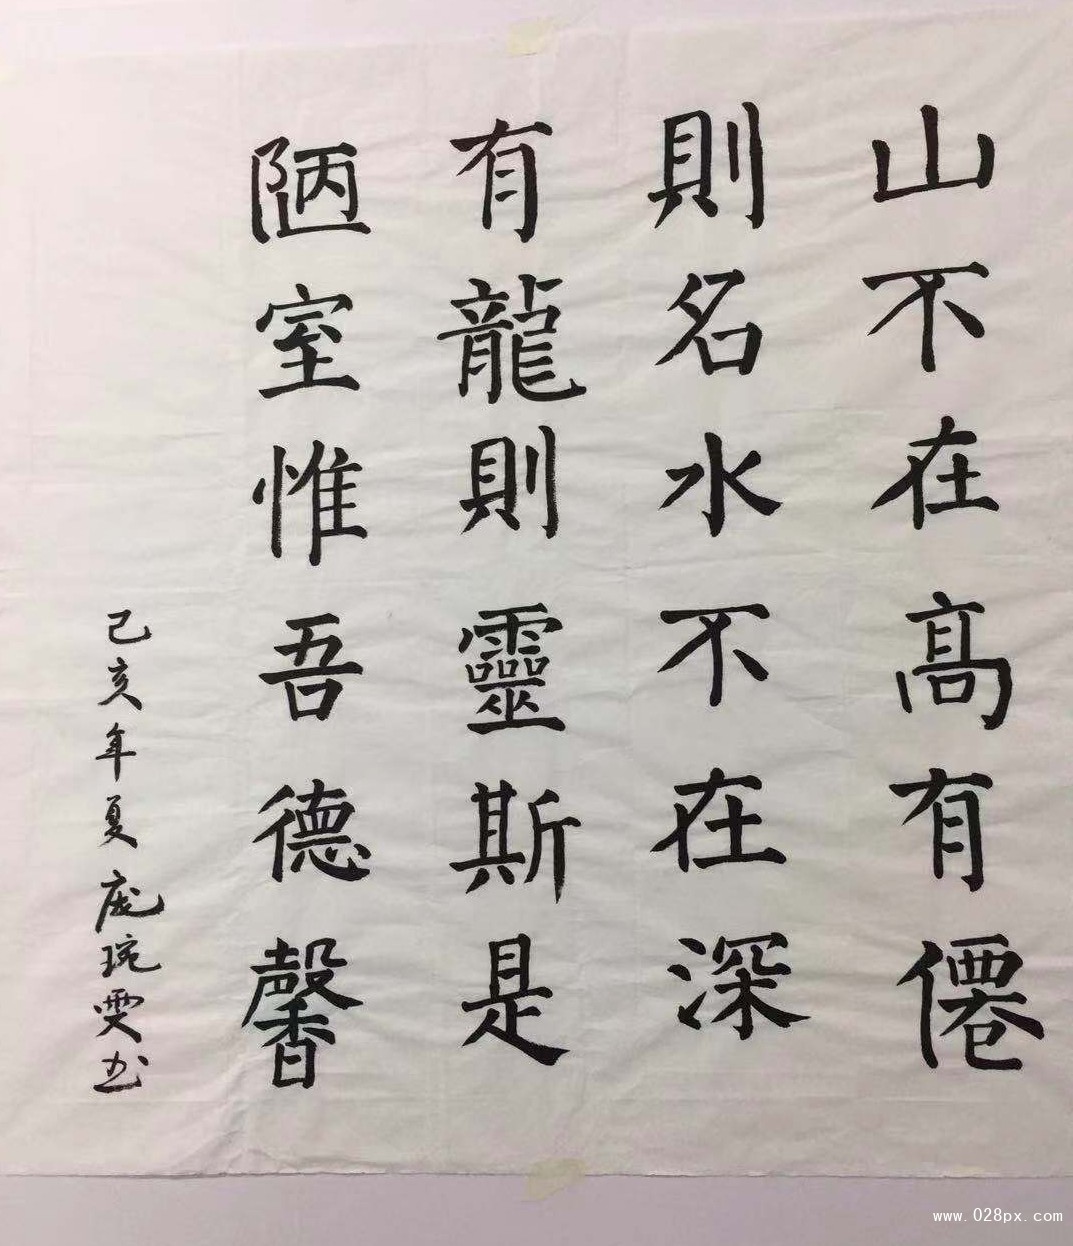 山不在高有僊
則名水不在深
有龍則靈斯是
陋室惟吾德馨
己亥年夏庞琬雯书
www.028px.com